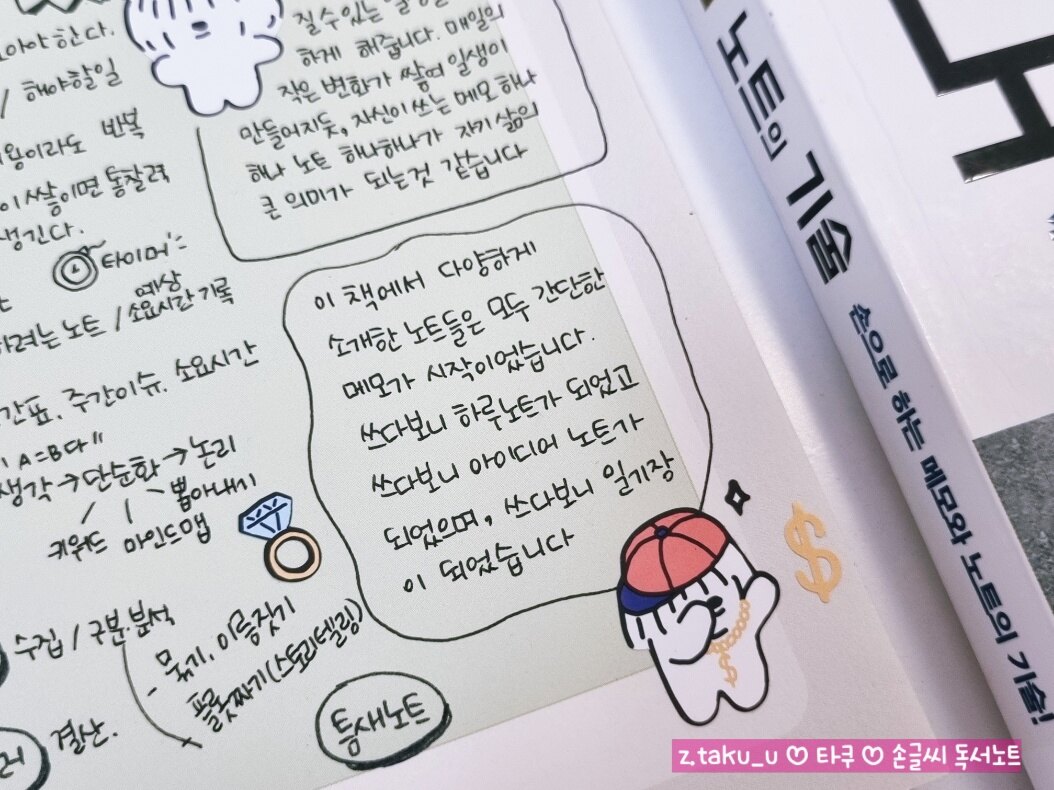 야 한다.
/ 해야할일
이라도 반복
이 쌓이면 통찰력
생긴다.
타이머:
하려는 노트 / 예상 소요시간 기록
간표. 주간이슈. 소요시간
"A=B다"
생각 → 단순화 → 논리
뽑아내기
키워드 마인드맵
수집 / 구분.분석
- 묶기, 이름짓기
플롯짜기(스토리텔링)
결산.
틈새노트
질 수 있는
하게 해줍니다. 매일의
작은 변화가 쌓여 일생이
만들어지듯, 자신이 쓰는 메모 하나
하나 노트 하나하나가 자기 삶의
큰 의미가 되는것 같습니다
이 책에서 다양하게
소개한 노트들은 모두 간단한
메모가 시작이었습니다.
쓰다보니 하루노트가 되었고
쓰다보니 아이디어 노트가
되었으며, 쓰다보니 일기장
이 되었습니다
노트의 기술
손으로 하는 메모와 노트의 기술!
z.taku_u ♡ 타쿠 ♡ 손글씨 독서노트